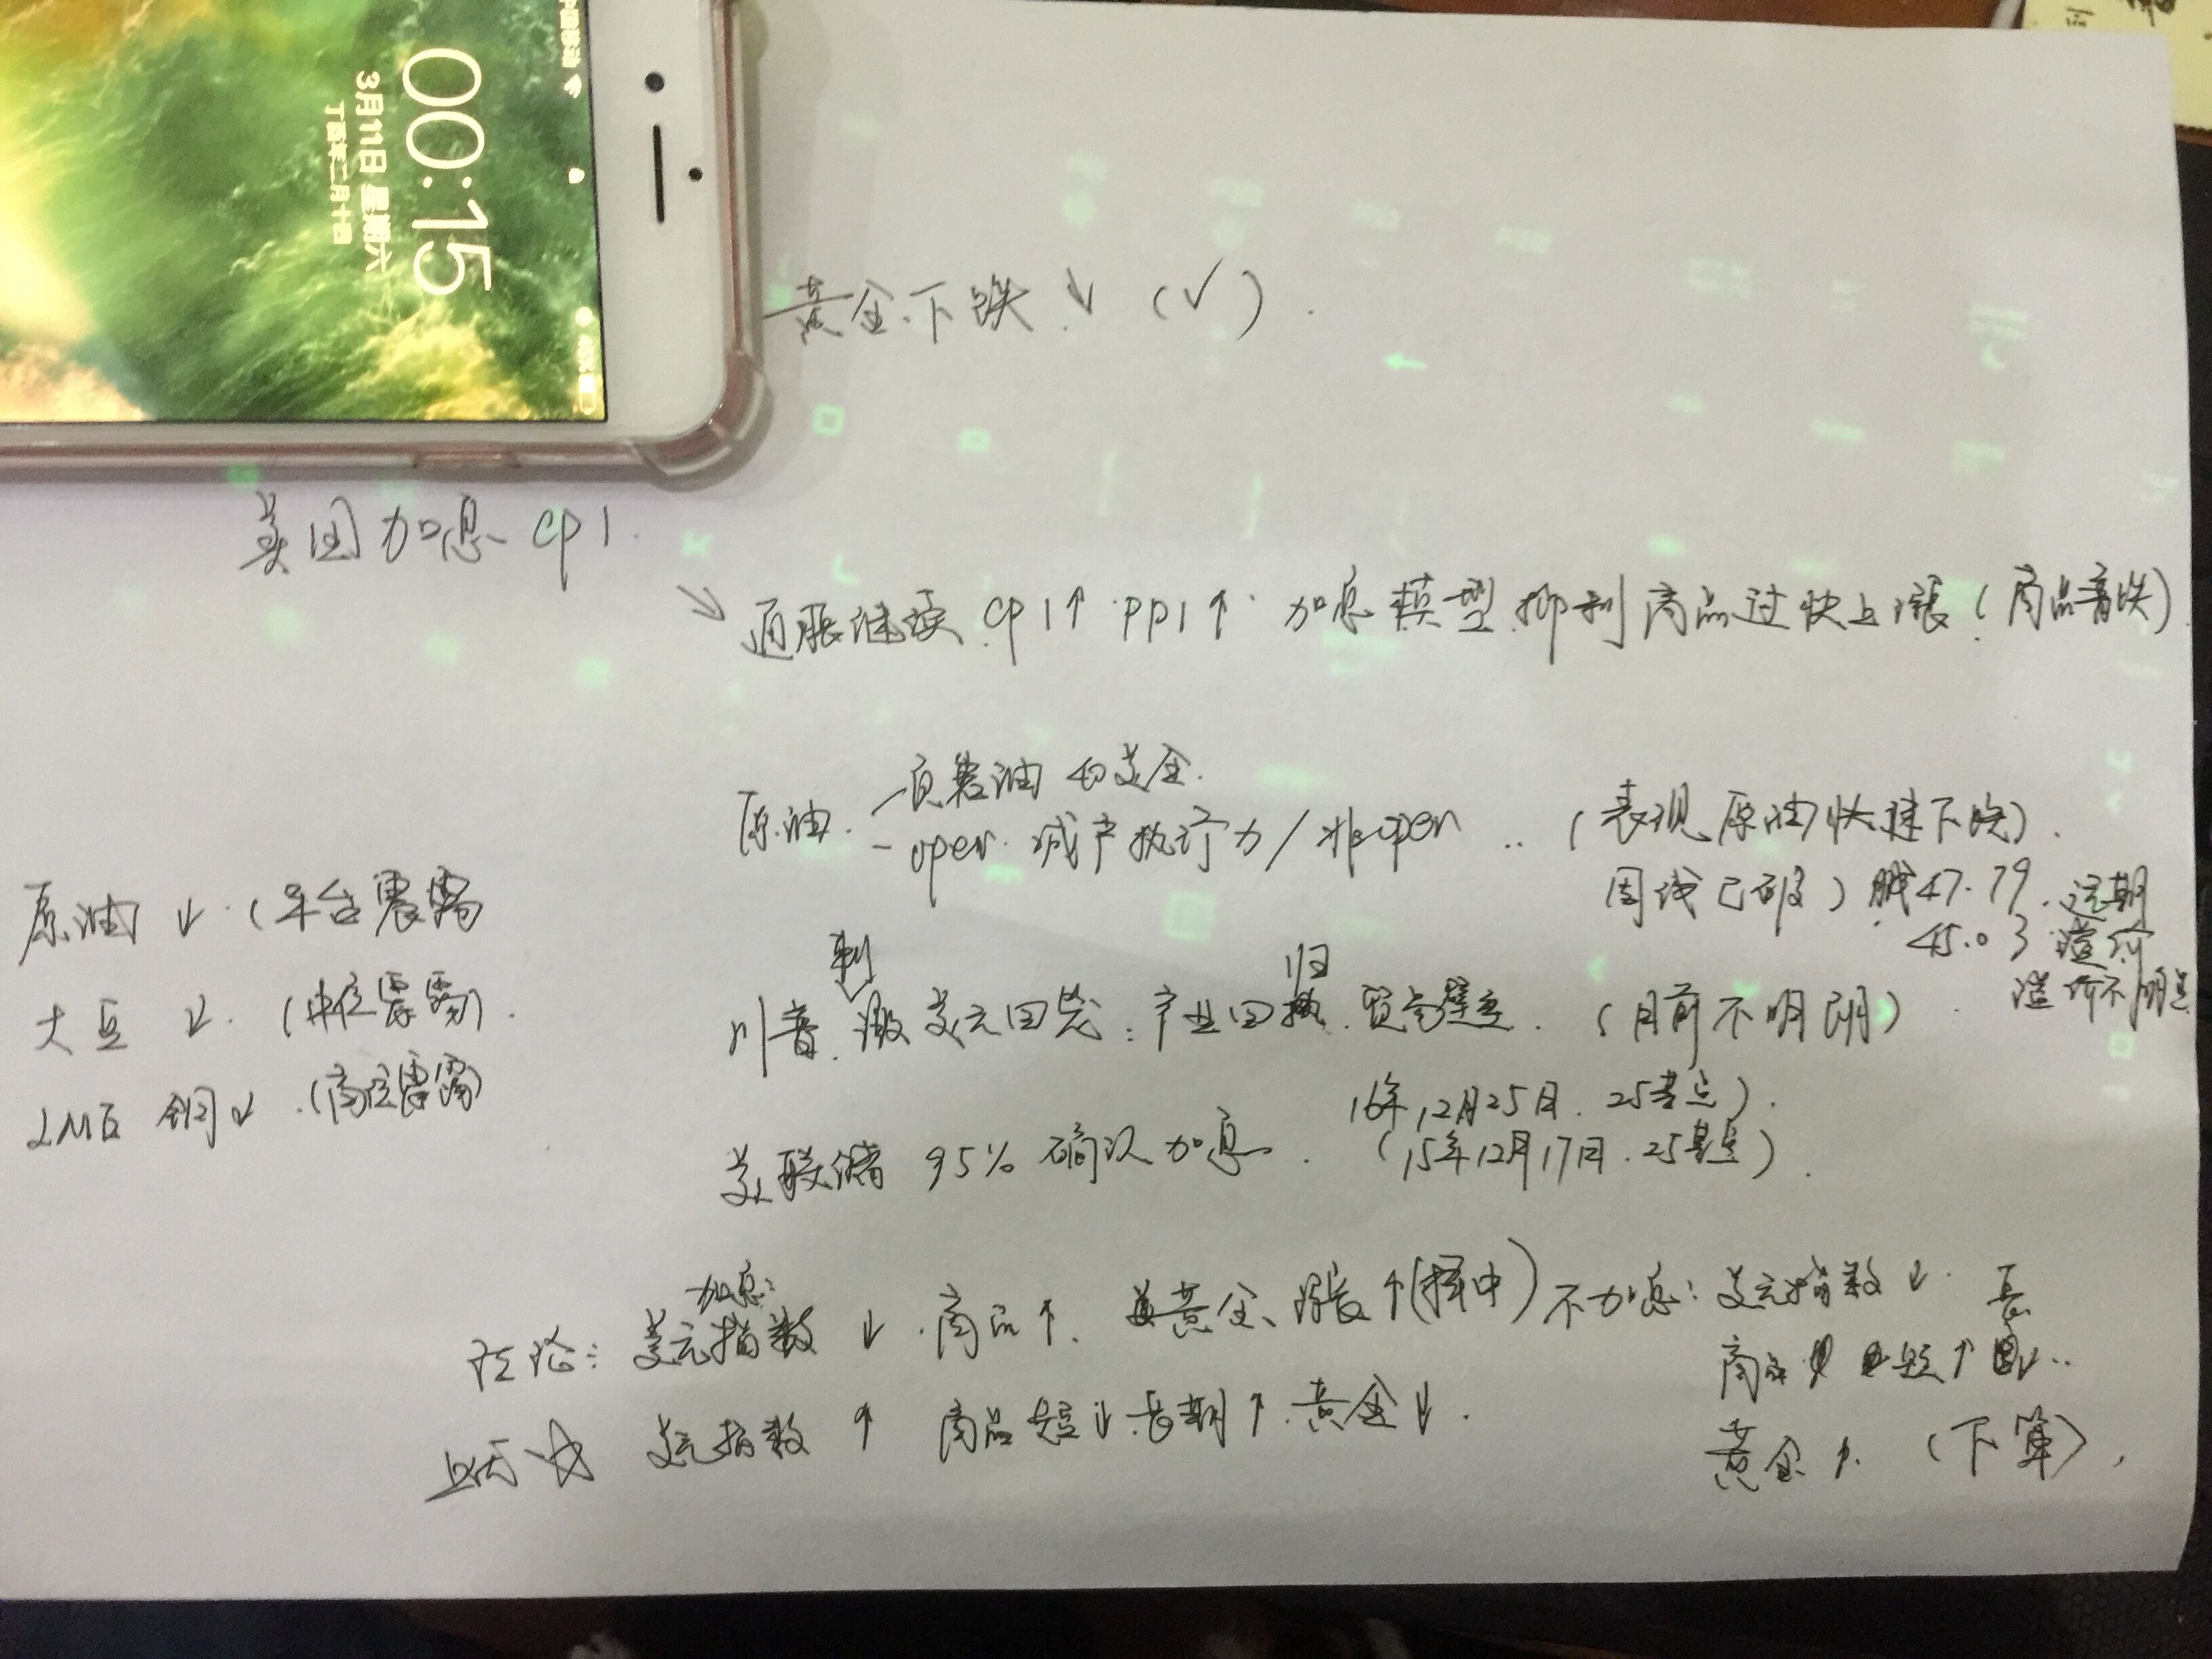 中国移动
00:15
3月11日 星期六
丁酉年二月十四
黄金下跌 ↓ (√).
美国加息 CPI.
↘ 通胀继续 CPI↑ PPI↑ 加息模型 抑制商品过快上涨 (商品普跌)
原油. 一页岩油 如美金.
一 open. 减产执行力 / 非open .. (表现原油快速下跌).
周线已破) 47.79. 远期
45.03 溢价
溢价不明显
原油 ↓ (平台震荡
大豆 ↓. (中位震荡).
LME 铜↓ (高位震荡)
川普. 制 美元回流: 产业回归 贸易壁垒. (目前不明朗)
美联储 95% 确认加息. 16年12月25日. 25基点).
(15年12月17日. 25基点).
加息:
理论: 美元指数 ↓. 商品↑. 黄金、涨↑(择中) 不加息: 美元指数 ↓.
商品 短↑ 长↓..
美元指数 ↑ 商品短↓ 长期↑. 黄金↓.
黄金↑. (下策).